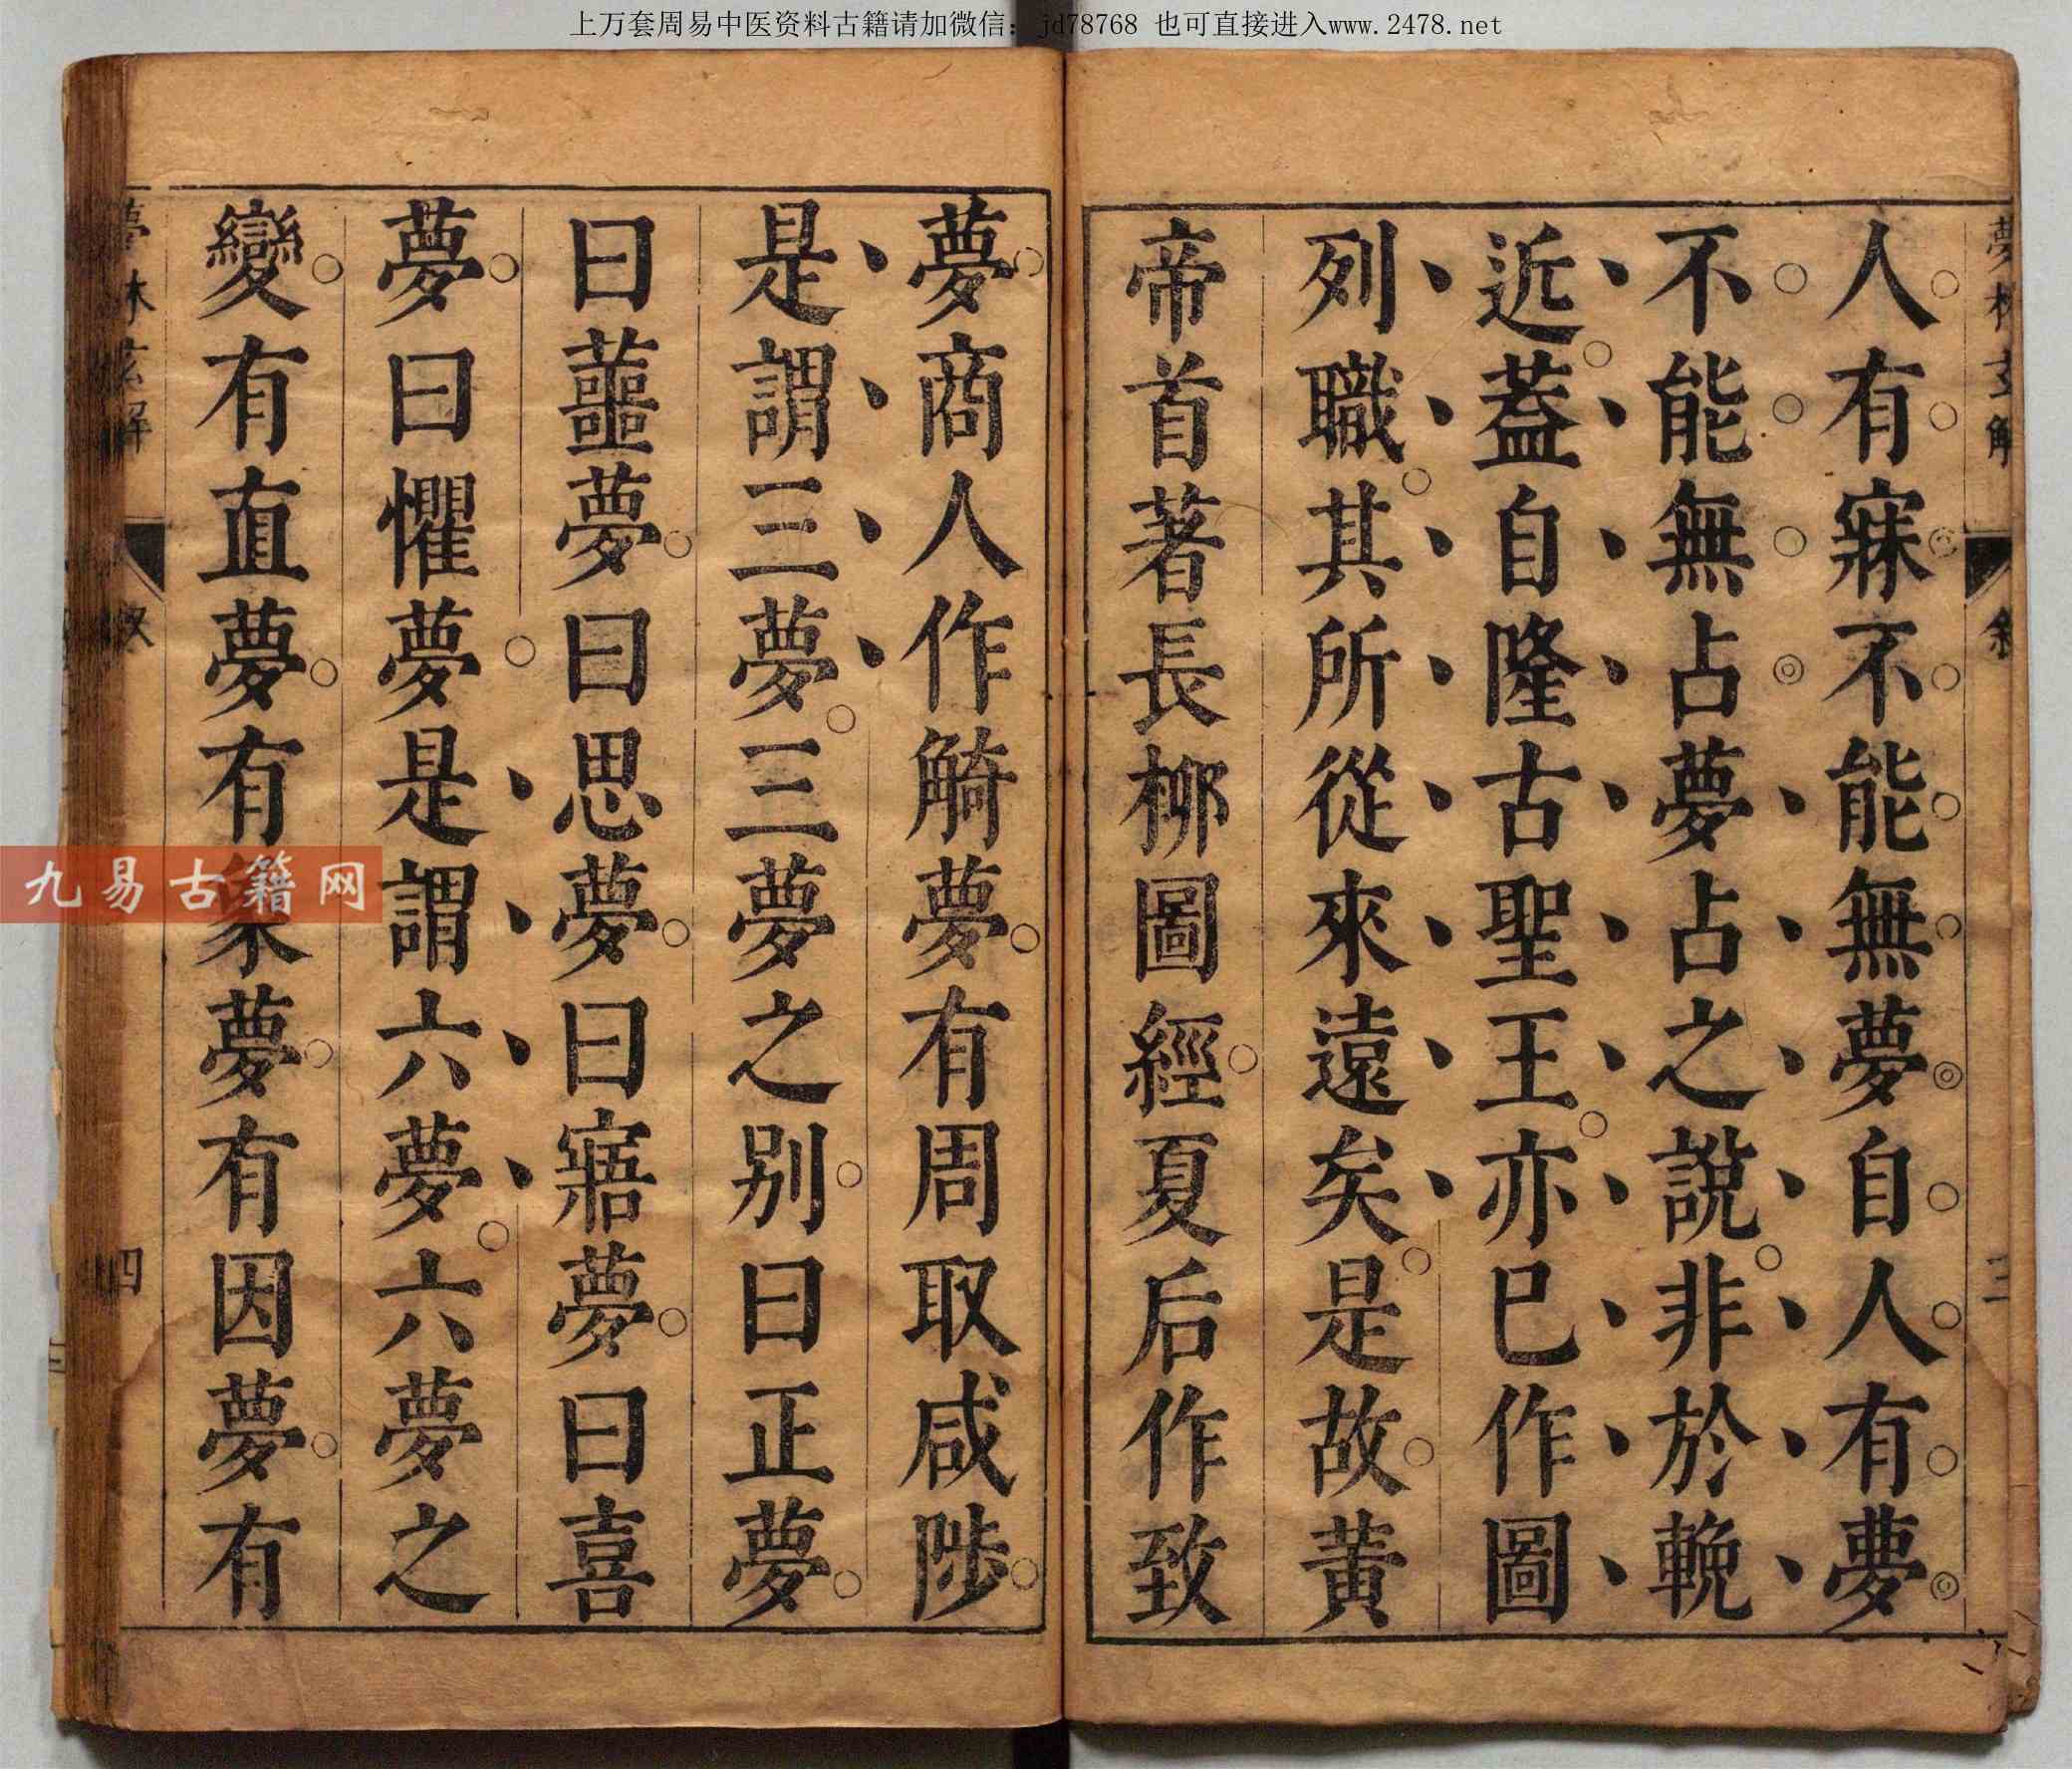 上万套周易中医资料古籍请加微信：jd78768 也可直接进入www.2478.net
人有寐不能無夢自人有夢
不能無占夢占之說非於輓
近葢自隆古聖王亦巳作圖
列職其所從來遠矣是故黃
帝首著長柳圖經夏后作致
夢商人作觭夢有周取咸陟
是謂三夢三夢之别曰正夢
曰蘁夢曰思夢曰寤夢曰喜
夢曰懼夢是謂六夢六夢之
變有直夢有象夢有因夢有
夢林玄解
敘
三
夢林玄解
四
九易古籍网